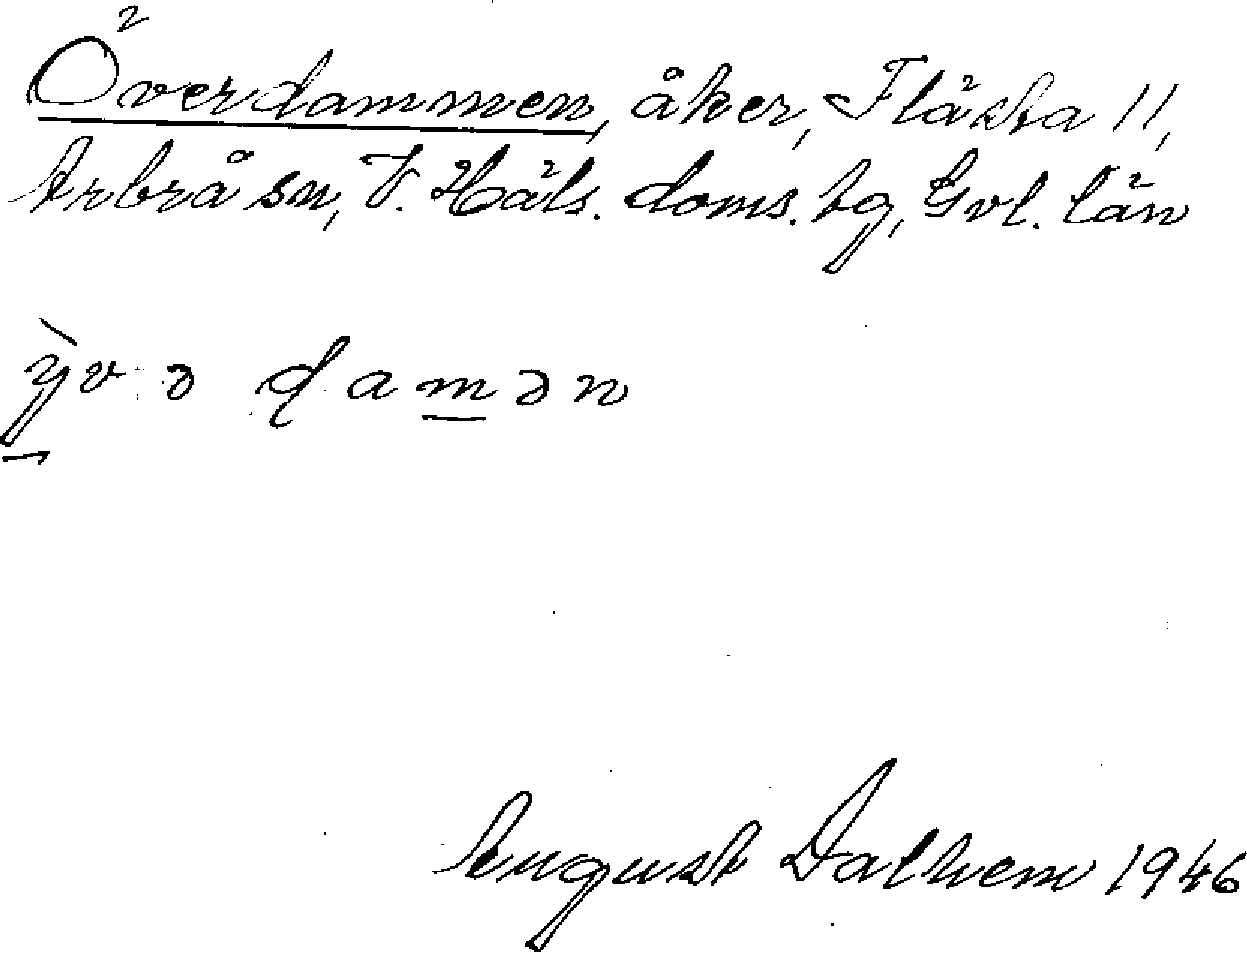 Överdammen, åker, Flästa 11,
Arbrå sn, V. Häls. doms. tg, Gvl. län
ỳvə ɖamən
August Dalhem 1946